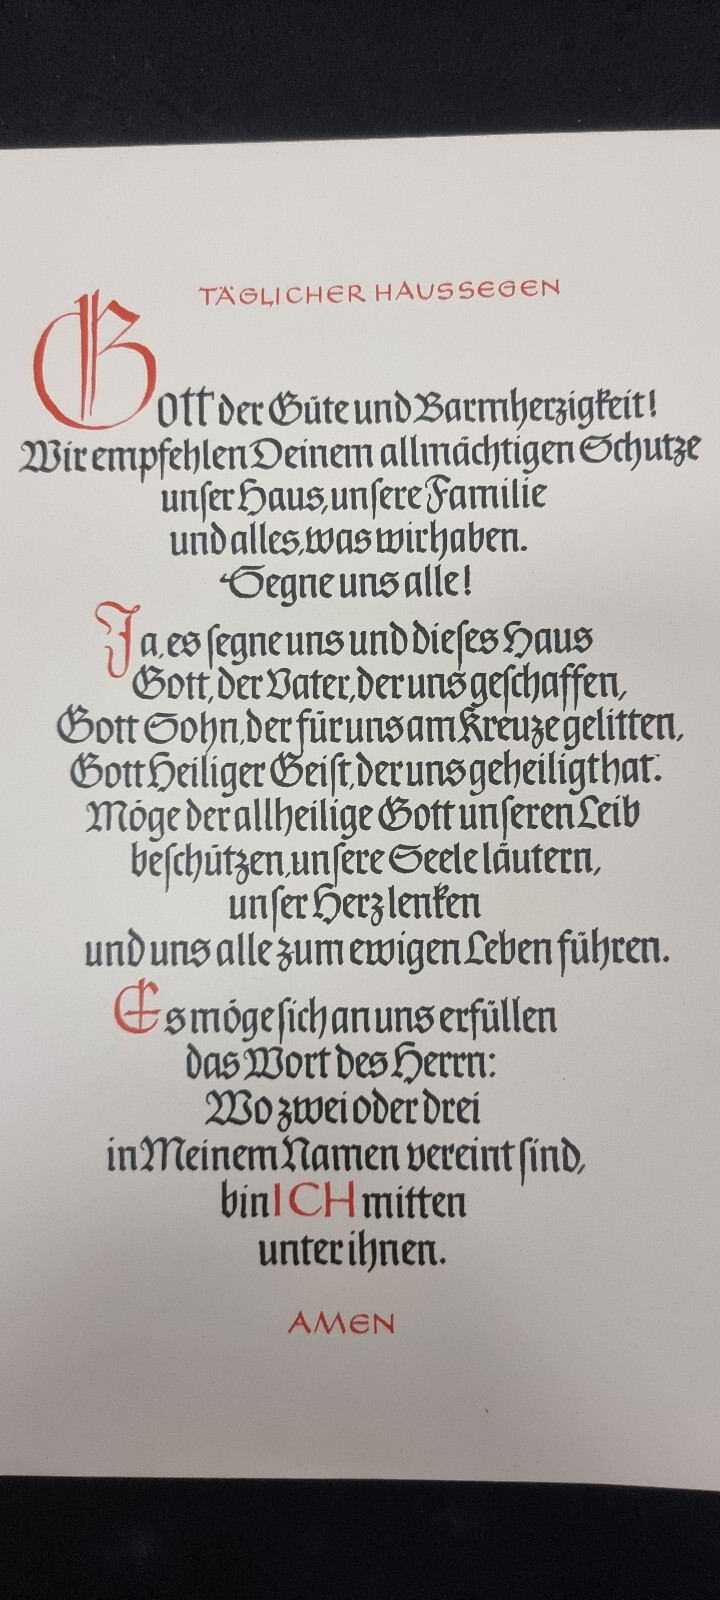 TÄGLICHER HAUSSEGEN
Gott der Güte und Barmherzigkeit!
Wir empfehlen Deinem allmächtigen Schutze
unser Haus, unsere Familie
und alles, was wir haben.
Segne uns alle!
Ja, es segne uns und dieses Haus
Gott, der Vater, der uns geschaffen,
Gott Sohn, der für uns am Kreuze gelitten,
Gott Heiliger Geist, der uns geheiligt hat.
Möge der allheilige Gott unseren Leib
beschützen, unsere Seele läutern,
unser Herz lenken
und uns alle zum ewigen Leben führen.
Es möge sich an uns erfüllen
das Wort des Herrn:
Wo zwei oder drei
in Meinem Namen vereint sind,
bin ICH mitten
unter ihnen.
AMEN